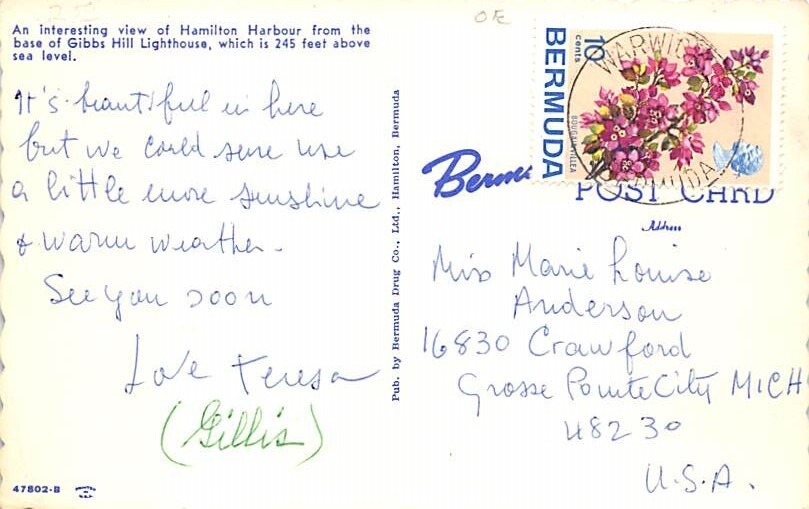 An interesting view of Hamilton Harbour from the
base of Gibbs Hill Lighthouse, which is 245 feet above
sea level.
It's beautiful in here
but we could sure use
a little more sunshine
& warm weather.
See you soon
Love Teresa
(Gillis)
47802-B
Pub. by Bermuda Drug Co., Ltd., Hamilton, Bermuda
OE
10
cents
BERMUDA
BOUGAINVILLEA
WARWICK
BERMUDA
POST CARD
Address
Miss Marie Louise
Anderson
16830 Crawford
Grosse Pointe City MICH
48230
U.S.A.